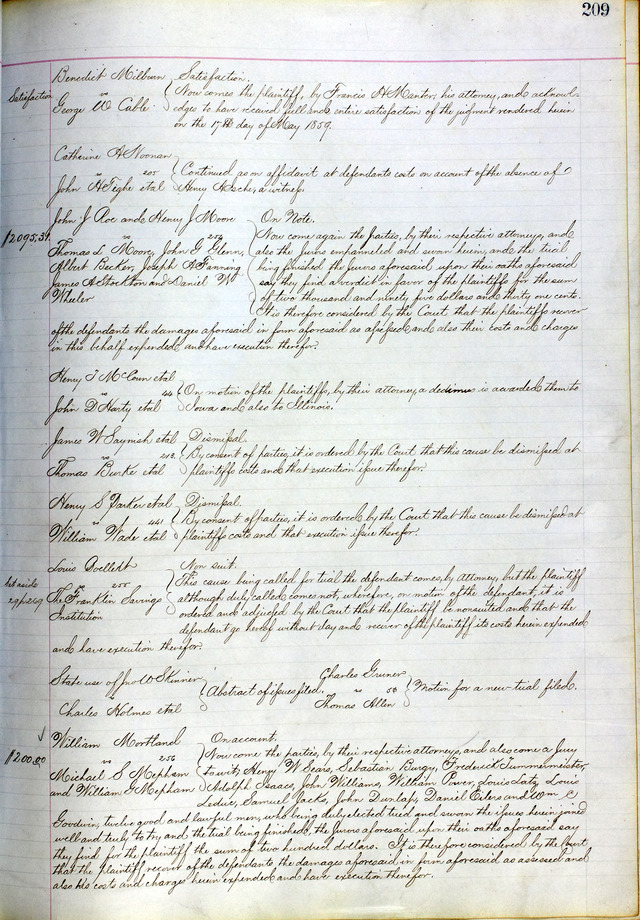 209
Benedict Milburn Satisfaction.
Satisfaction vs Now comes the plaintiff, by Francis H Manter, his attorney, and acknowl-
George W Cable edges to have received full and entire satisfaction of the judgment rendered herein
on the 17th day of May 1859.
Catherine A Noonan
vs 205 Continued as on affidavit at defendants costs on account of the absence of
John H Tighe etal Henry Asche, a witness.
John J Roe and Henry J Moore On Note.
$2095,31. vs 214 Now come again the parties, by their respective attorneys, and
Thomas L Moore, John G Glenn, also the jurors empanneled and sworn herein, and the trial
Albert Becker, Joseph A Fanning being finished the jurors aforesaid upon their oaths aforesaid
James A Stockton and Daniel W say they find a verdict in favor of the plaintiffs for the sum
Wheeler of two thousand and ninety five dollars and thirty one cents.
It is therefore considered by the Court, that the plaintiffs recover
of the defendants the damages aforesaid in form aforesaid as assessed and also their costs and charges
in this behalf expended, and have execution therefor.
Henry T McCoun etal
vs 44 On motion of the plaintiffs, by their attorney, a dedimus is awarded them to
John D Harty etal Iowa and also to Illinois.
James W etal Dismissal.
vs 213 By consent of parties, it is ordered by the Court that this cause be dismissed at
Thomas Burke etal plaintiffs costs and that execution issue therefor.
Henry S Parker etal Dismissal.
vs 441 By consent of parties, it is ordered by the Court that this cause be dismissed at
William Wade etal plaintiffs costs and that execution issue therefor.
Louis Non suit.
Set aside vs 255 This cause being called for trial the defendant comes, by Attorney, but the plaintiff
The Franklin Savings although duly called comes not, wherefore, on motion of the defendant, it is
Institution ordered and adjudged by the Court that the plaintiff be nonsuited and that the
defendant go hereof without day and recover of the plaintiff its costs herein expended
and have execution therefor.
State use of Jno W Skinner Charles Gruner
vs Abstract of issues filed. vs 58 Motion for a new trial filed.
Charles Holmes etal Thomas Allen
William Mortland On account.
$200.00 vs 256 Now come the parties, by their respective attorneys, and also come a Jury
Michael S Mepham towit, Henry W Sears, Sebastian Burgy, Frederick Summermeister,
and William G Mepham Adolph Isaacs, John Williams, William Power, Louis Latz, Louis
Leduc, Samuel Jacks, John Dunlap, Daniel Eilers and Wm C
Goodwin, twelve good and lawful men, who being duly elected tried and sworn the issues herein joined
well and truly to try and the trial being finished, the jurors aforesaid upon their oaths aforesaid say
they find for the plaintiff the sum of two hundred dollars. It is therefore considered by the Court
that the plaintiff recover of the defendants the damages aforesaid in form aforesaid as assessed and
also his costs and charges herein expended and have execution therefor.